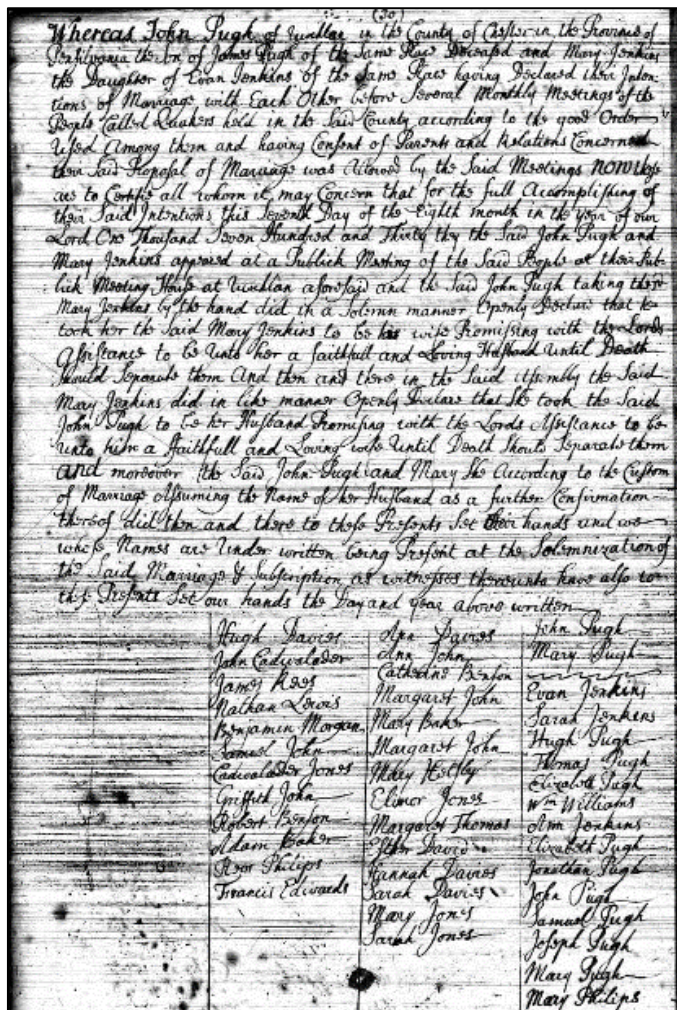 (30)
Whereas John Pugh of Uwchlan in the County of Chester in the Province of
Pensilvania the son of James Pugh of the Same Place Deceased and Mary Jenkins
the Daughter of Evan Jenkins of the Same Place having Declared their Inten-
tions of Marriage with Each Other before Several Monthly Meetings of the
People Called Quakers held in the Said County according to the good Order
Used Among them and having Consent of Parents and Relations Concerned
their Said Proposal of Marriage was Allowed by the Said Meetings NOW these
are to Certifie all whom it may Concern that for the full Accomplishing of
their Said Intentions this Seventh Day of the Eighth month in the year of our
Lord One Thousand Seven Hundred and Thirty they the Said John Pugh and
Mary Jenkins appeared at a Publick Meeting of the Said People at their Pub-
lick Meeting House at Uwchlan aforesaid and the Said John Pugh taking the Sd
Mary Jenkins by the hand did in a Solemn manner Openly Declare that he
took her the Said Mary Jenkins to be his wife Promissing with the Lords
Assistance to be Unto her a faithfull and Loving Husband Until Death
Should Separate them And then and there in the Said Assembly the Said
Mary Jenkins did in like manner Openly Declare that She took the Said
John Pugh to be her Husband Promising with the Lords Assistance to be
Unto him a ffaithfull and Loving wife Until Death Should Separate them
And moreover the Said John Pugh and Mary She According to the Custom
of Marriage Assuming the Name of her Husband as a further Confirmation
thereof did then and there to these Presents Set their hands and we
whose Names are Under written being Present at the Solemnization of
the Said Marriage & Subscription as witnesses thereunto have also to
these Presents Set our hands the Day and year above written
Hugh Davies
John Cadwalader
James Rees
Nathan Lewis
Benjamin Morgan
Samuel John
Cadwalader Jones
Griffith John
Robert Benson
Adam Baker
Rees Philips
Francis Edwards
Ann Davies
Ann John
Catherine Benson
Margaret John
Mary Baker
Margaret John
Mary
Elinor Jones
Margaret Thomas
Esther David
Hannah Davies
Sarah Davies
Mary Jones
Sarah Jones
John Pugh
Mary Pugh
Evan Jenkins
Sarah Jenkins
Hugh Pugh
Thomas Pugh
Elizabeth Pugh
Wm Williams
Ann Jenkins
Elizabeth Pugh
Jonathan Pugh
John Pugh
Samuel Pugh
Joseph Pugh
Mary Pugh
Mary Philips